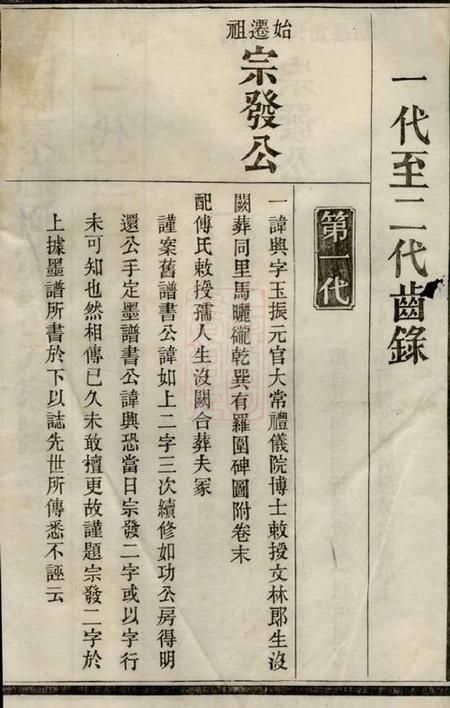 一代至二代齒錄
第一代
始遷祖
宗發公
一諱興字玉振元官大常禮儀院博士敕授文林郎生沒
闕葬同里馬曬礲乾巽有羅圍碑圖附卷末
配傅氏敕授孺人生沒闕合葬夫冢
謹案舊譜書公諱如上二字三次續修如功公房得明
還公手定墨譜書公諱興恐當日宗發二字或以字行
未可知也然相傳已久未敢擅更故謹題宗發二字於
上據墨譜所書於下以誌先世所傳悉不誣云